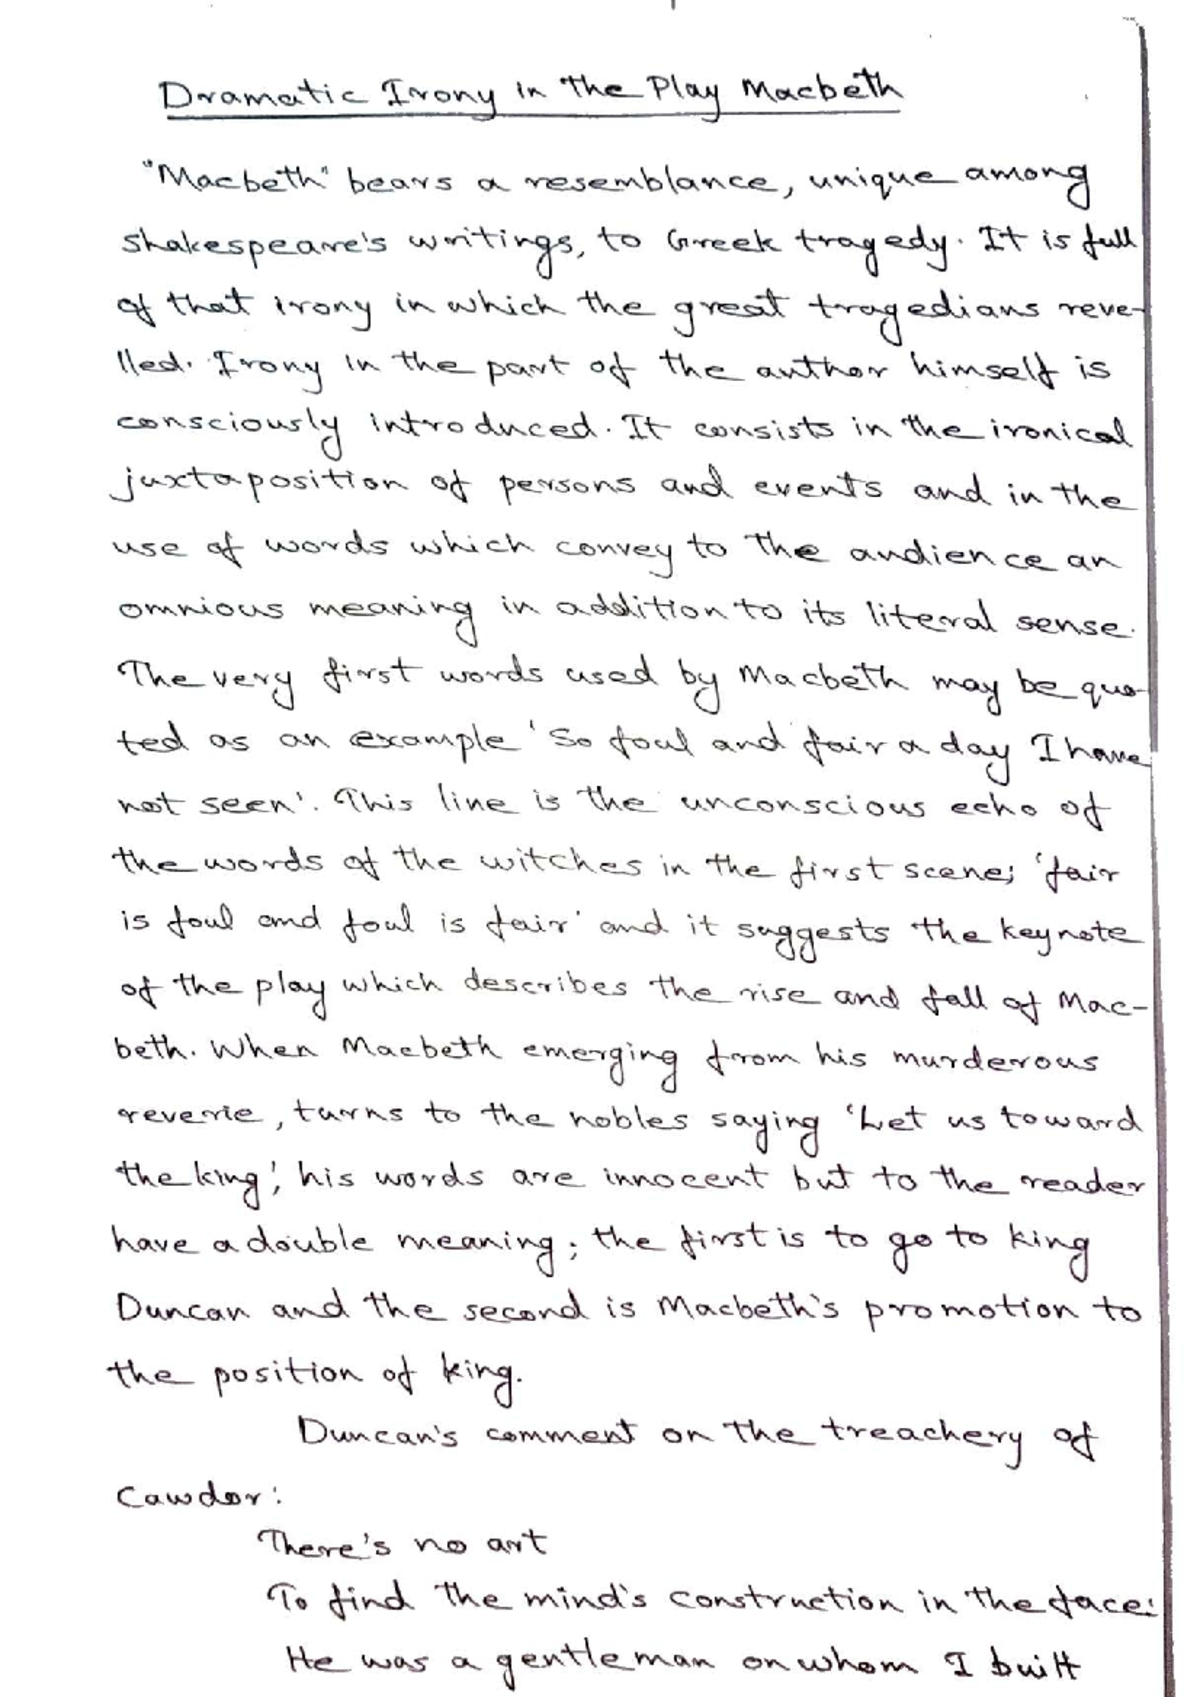 Dramatic Irony in the Play Macbeth
"Macbeth" bears a resemblance, unique among
Shakespeare's writings, to Greek tragedy. It is full
of that irony in which the great tragedians reve-
lled. Irony in the part of the author himself is
consciously introduced. It consists in the ironical
juxtaposition of persons and events and in the
use of words which convey to the audience an
omnious meaning in addition to its literal sense.
The very first words used by Macbeth may be quo-
ted as an example 'So foul and fair a day I have
not seen'. This line is the unconscious echo of
the words of the witches in the first scene; 'fair
is foul and foul is fair' and it suggests the keynote
of the play which describes the rise and fall of Mac-
beth. When Macbeth emerging from his murderous
reverie, turns to the nobles saying 'Let us toward
the king', his words are innocent but to the reader
have a double meaning; the first is to go to king
Duncan and the second is Macbeth's promotion to
the position of king.
Duncan's comment on the treachery of
Cawdor:
There's no art
To find the mind's construction in the face:
He was a gentleman on whom I built